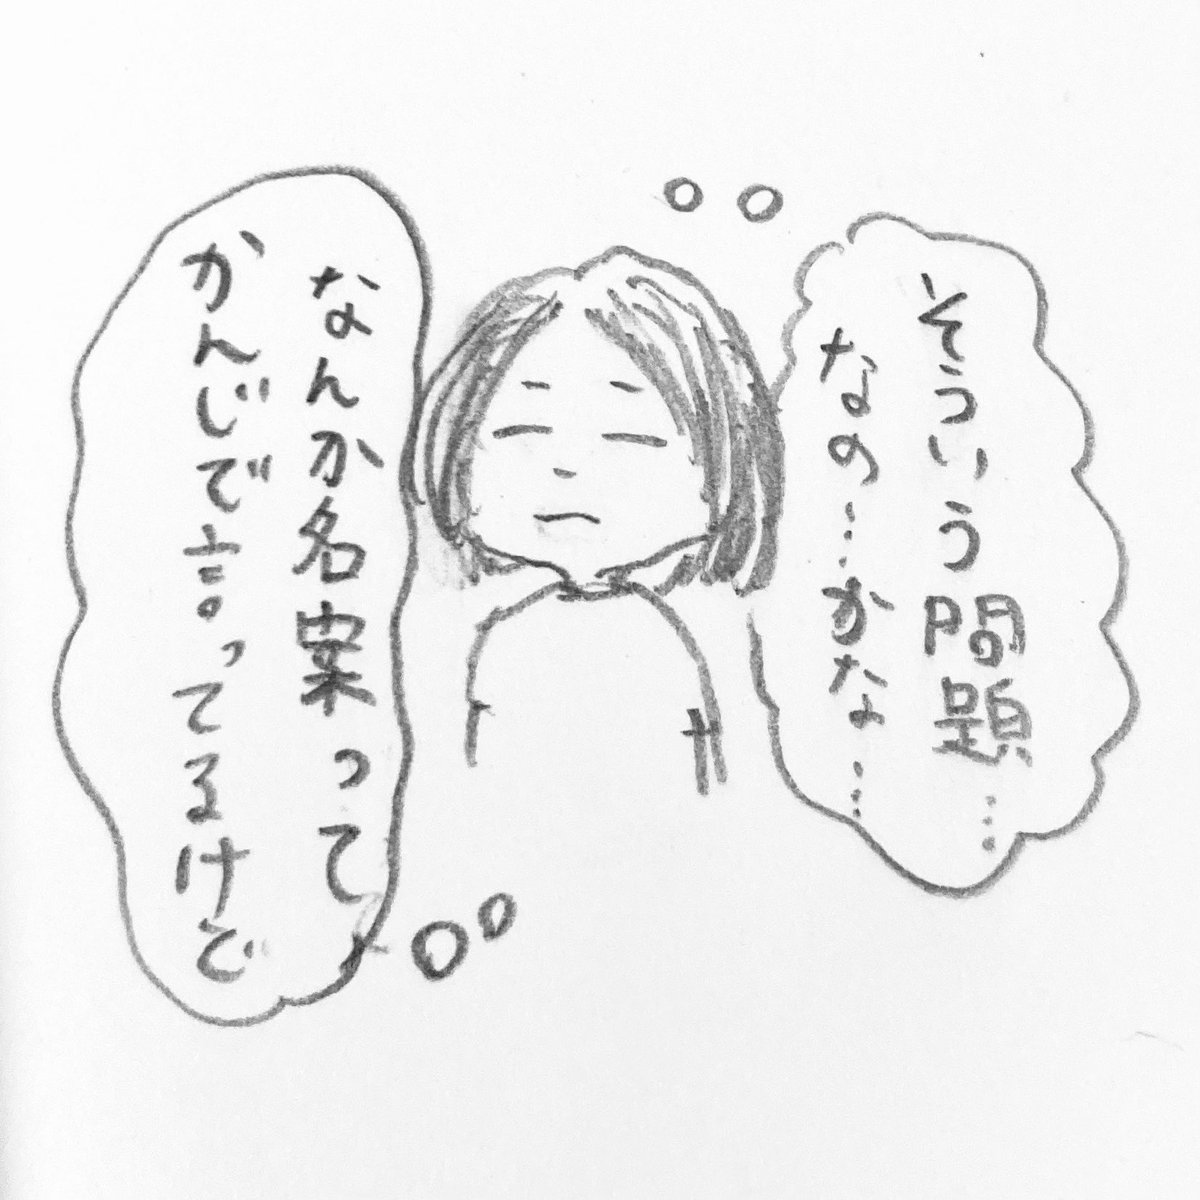 そういう問題…
なの…かな…
なんか名案って
かんじで言ってるけど